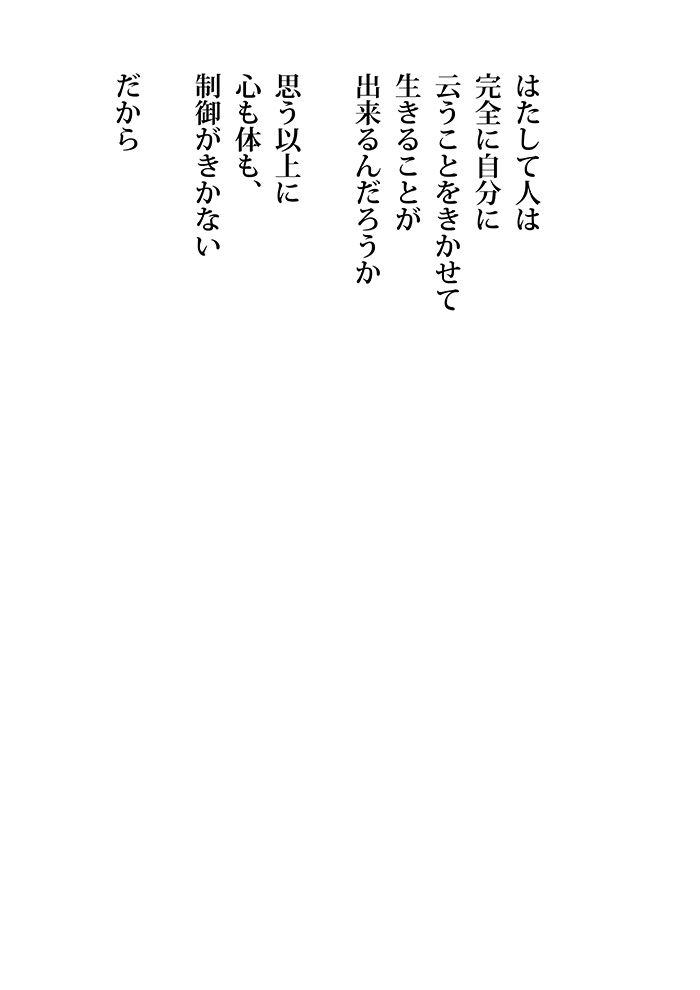 はたして人は
完全に自分に
云うことをきかせて
生きることが
出来るんだろうか
思う以上に
心も体も、
制御がきかない
だから